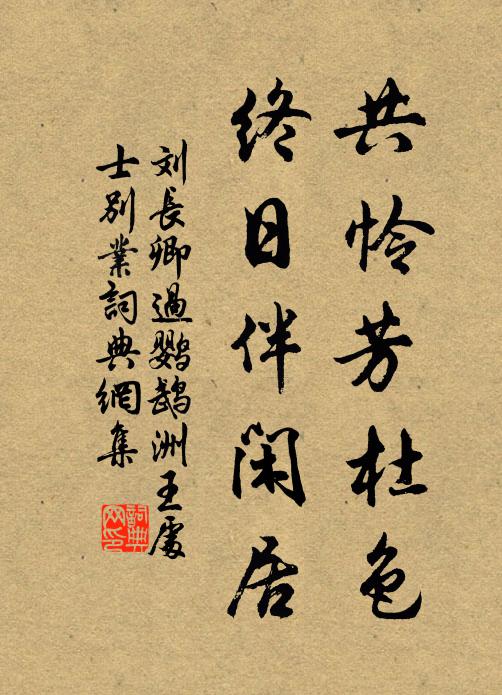 共怜芳杜色
终日伴闲居
刘長卿過鹦鹉洲王處
士别業詞典網集
詞典网印